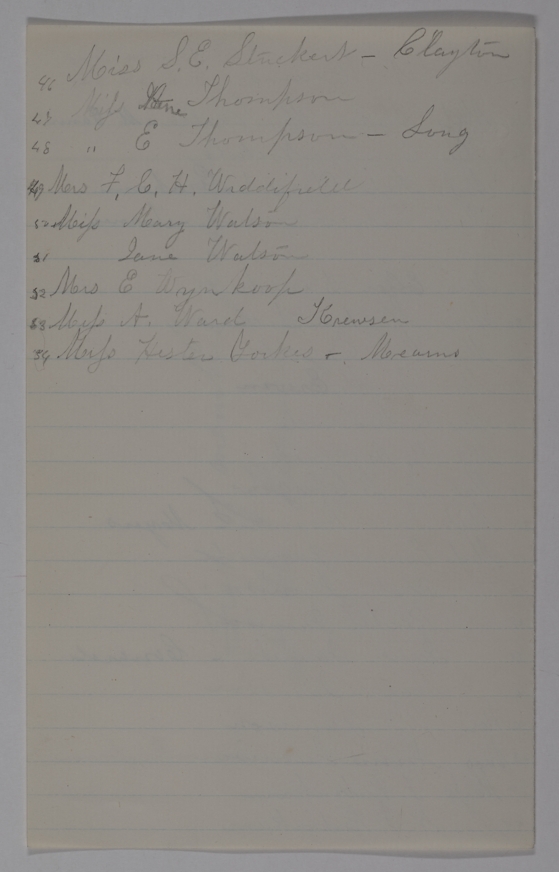 46 Miss S. E. Stuckert - Clayton
47 Miss Thompson
48 " E Thompson - Long
49 Mrs F. C. H. Widdifield
50 Miss Mary Watson
51 Jane Watson
52 Mrs E Wynkoop
53 Miss A. Ward Krewsen
54 Miss Hester Yorkes - Mearns